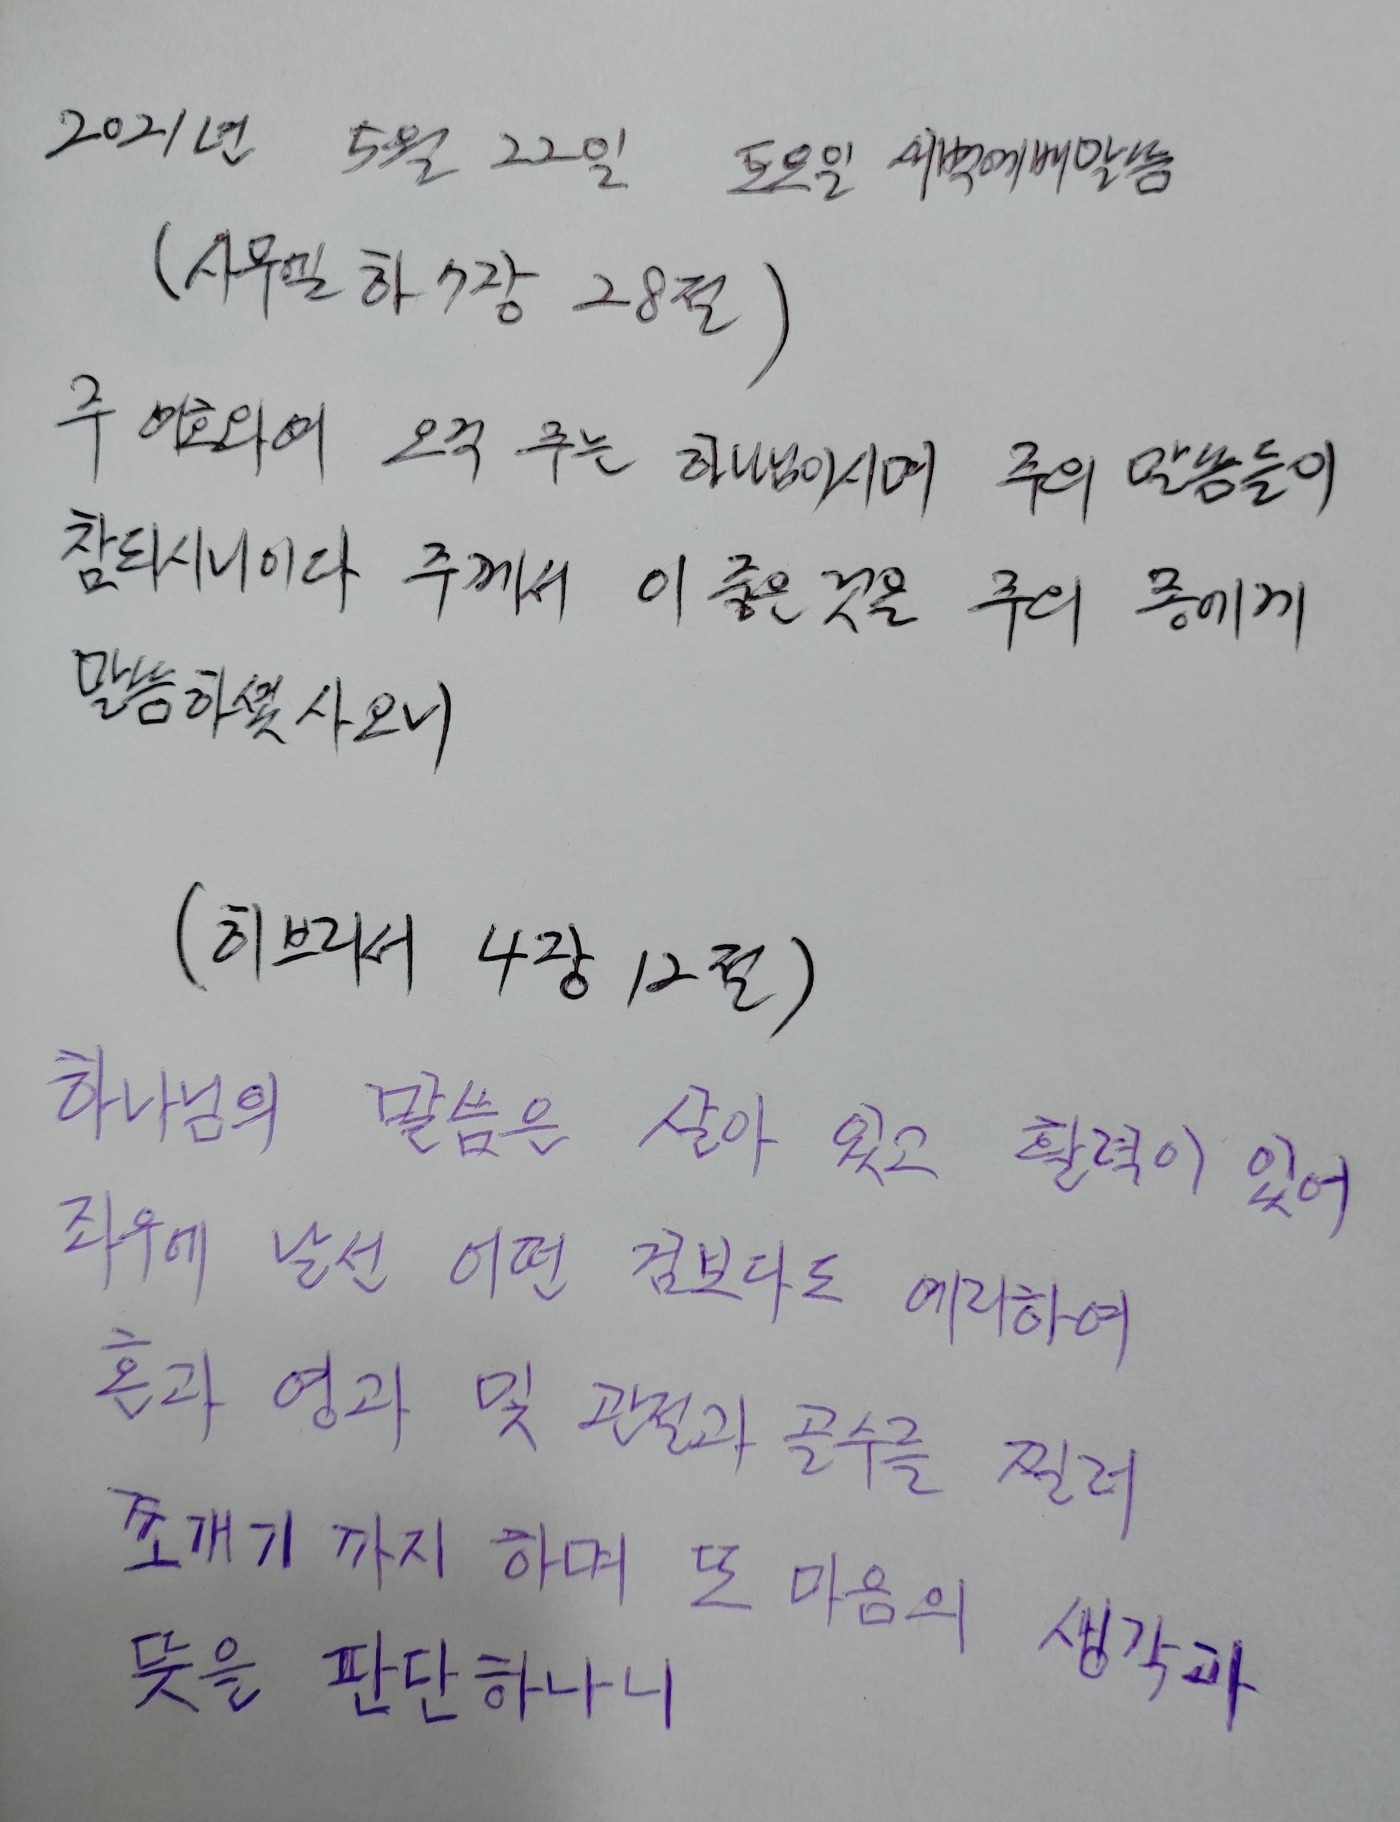 2021년 5월 22일 토요일 새벽예배말씀
(사무엘 하 7장 28절)
주 여호와여 오직 주는 하나님이시며 주의 말씀들이
참되시니이다 주께서 이 좋은 것을 주의 종에게
말씀하셨사오니
(히브리서 4장 12절)
하나님의 말씀은 살아 있고 활력이 있어
좌우에 날선 어떤 검보다도 예리하여
혼과 영과 및 관절과 골수를 찔러
쪼개기 까지 하며 또 마음의 생각과
뜻을 판단하나니